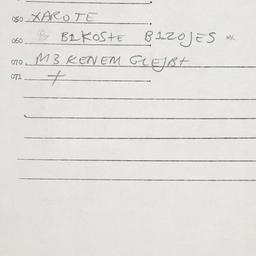 050 XAROTE
060 B1KOSTE B1ZOJES
070 M3 KENEM GLEJBT
071 +